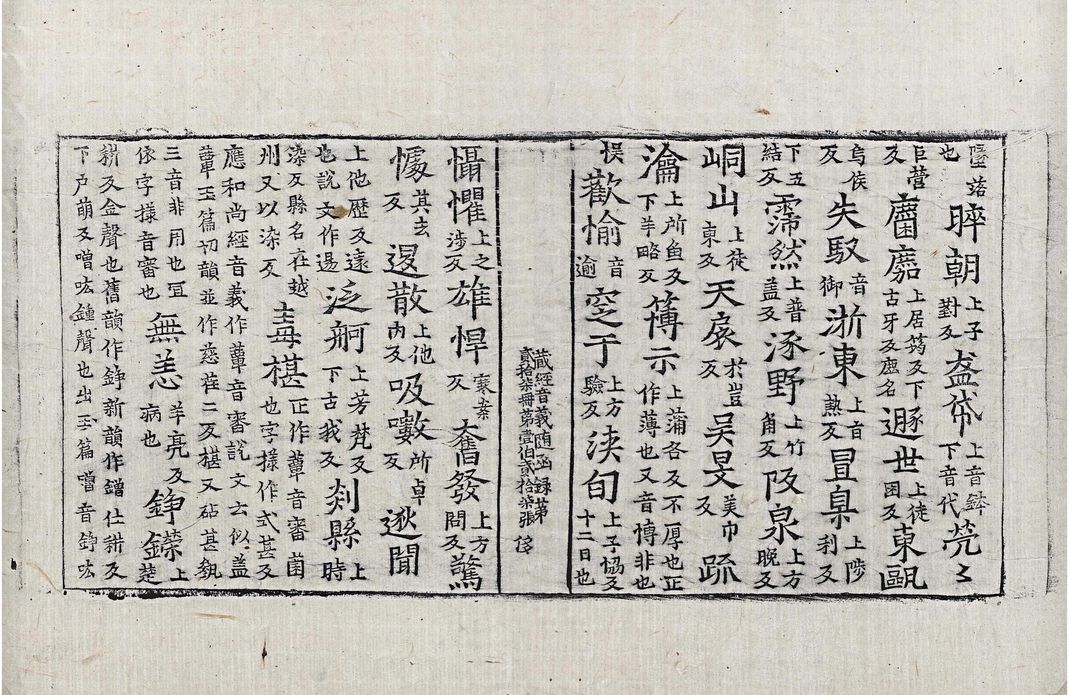 墜落也 晬朝上子對反 盋帒上音鉢下音代 焭〻
巨營反 麕麚上居筠反下古牙反䴥名 遯世上徒困反 東甌
烏侯反 失馭音御 浙東上音熱反 冒臬上陟利反
下五結反 霈然上普蓋反 涿野上竹角反 阪泉上方晚反
峒山上徒東反 天扆於豈反 吳旻美巾反 䟽
瀹上所魚反下羊略反 簿示上蒲各反不厚也正作薄也又音博非也
悮 歡愉音逾 窆于上方驗反 浹旬上子協反十二日也
藏經音義随函録第貳拾柒冊第壹伯貳拾柒張 侈
懾懼上之涉反 雄悍寒案反 奮發上方問反 驚
懅其去反 退散上他內反 吸嗽所卓反 逖聞
上他歴反遠也說文作逷 泛舸上芳梵反下古我反 剡縣上時
染反縣名在越州又以染反 主毒椹正作蕈音審菌也字樣作式甚反
應和尚經音義作蕈音審說文云似盖蕈玉篇切韻並作慈荏二反椹又砧甚䞇
三音非用也冝依字樣音審也 無恙羊亮反病也 錚鑅上楚
耕反金聲也舊韻作錚新韻作鏳仕耕反下户萌反噌吰鍾聲也出玉篇噌音錚吰